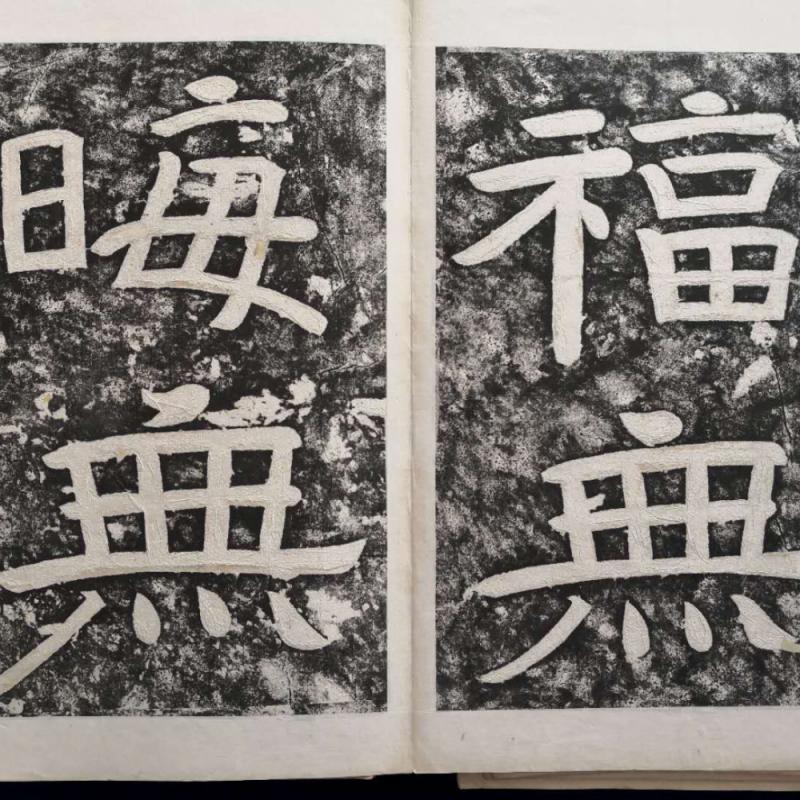 福無
晦無